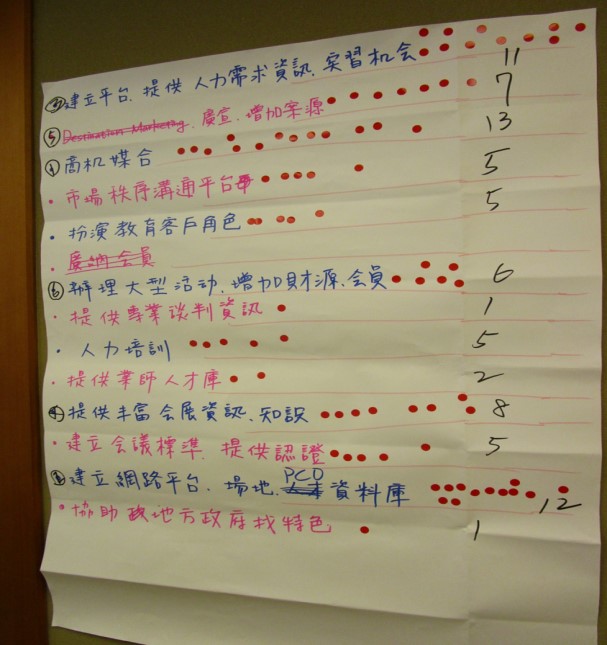 ③建立平台、提供人力需求資訊、实習机会 11
⑤Destination Marketing、廣宣、增加案源 7
①商机媒合 13
・市場秩序溝通平台 5
・扮演教育客戶角色 5
・廣納会員
⑥辦理大型活动、增加財源、会員 6
・提供專業談判資訊 1
・人力培訓 5
・提供業師人才庫 2
④提供丰富会展資訊、知識 8
・建立会議標準、提供認證 5
②建立網路平台、場地、PCO 資料庫 12
・協助地方政府找特色 1